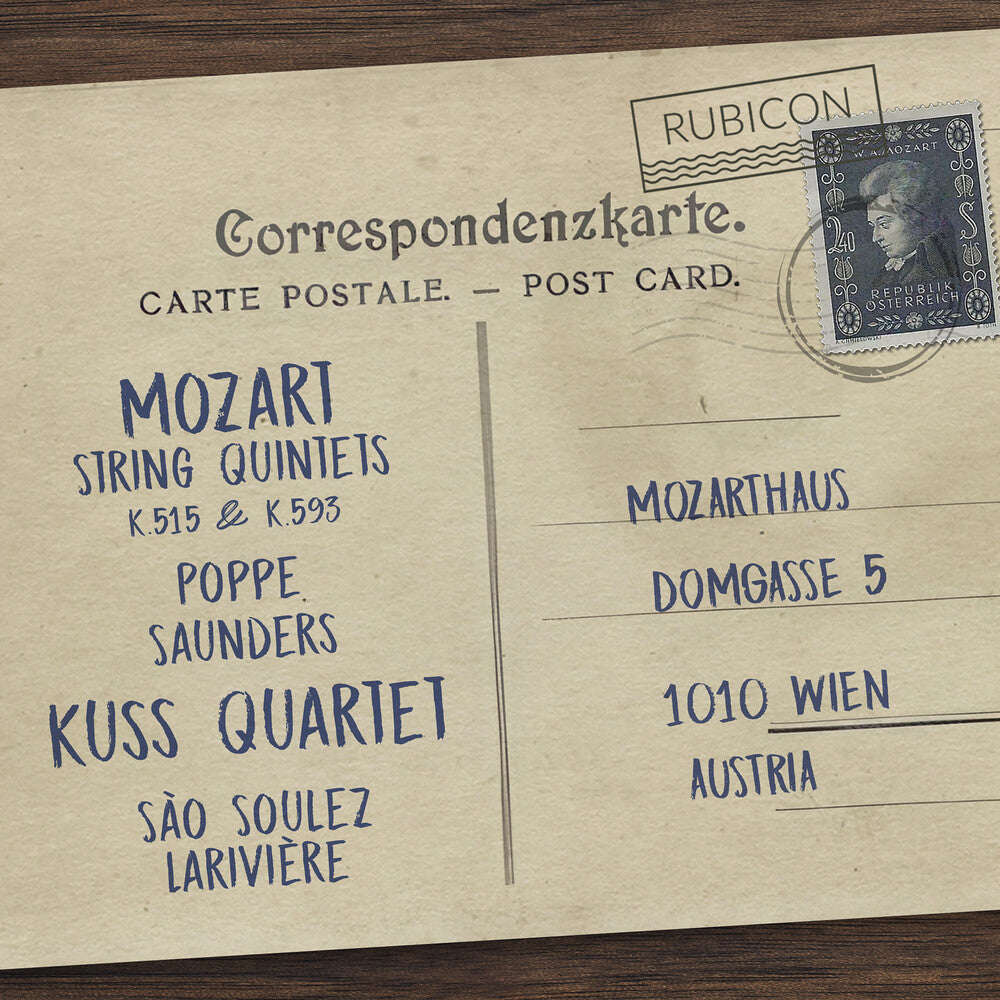 RUBICON
W.A. MOZART
2,40
S
REPUBLIK
ÖSTERREICH
Correspondenzkarte.
CARTE POSTALE. — POST CARD.
MOZART
STRING QUINTETS
K.515 & K.593
POPPE
SAUNDERS
KUSS QUARTET
SÀO SOULEZ
LARIVIÈRE
MOZARTHAUS
DOMGASSE 5
1010 WIEN
AUSTRIA